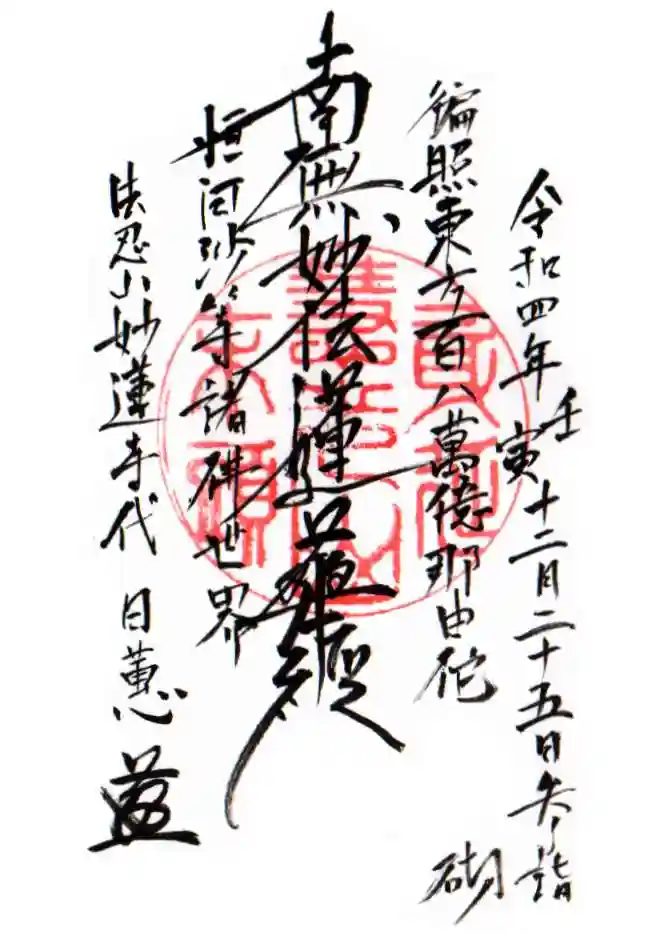 令和四年壬寅十二月二十五日参詣
徧照東方百八萬億那由佗
南無妙法蓮華経
恒河沙等諸佛世界
法忍山妙蓮寺代 日薫